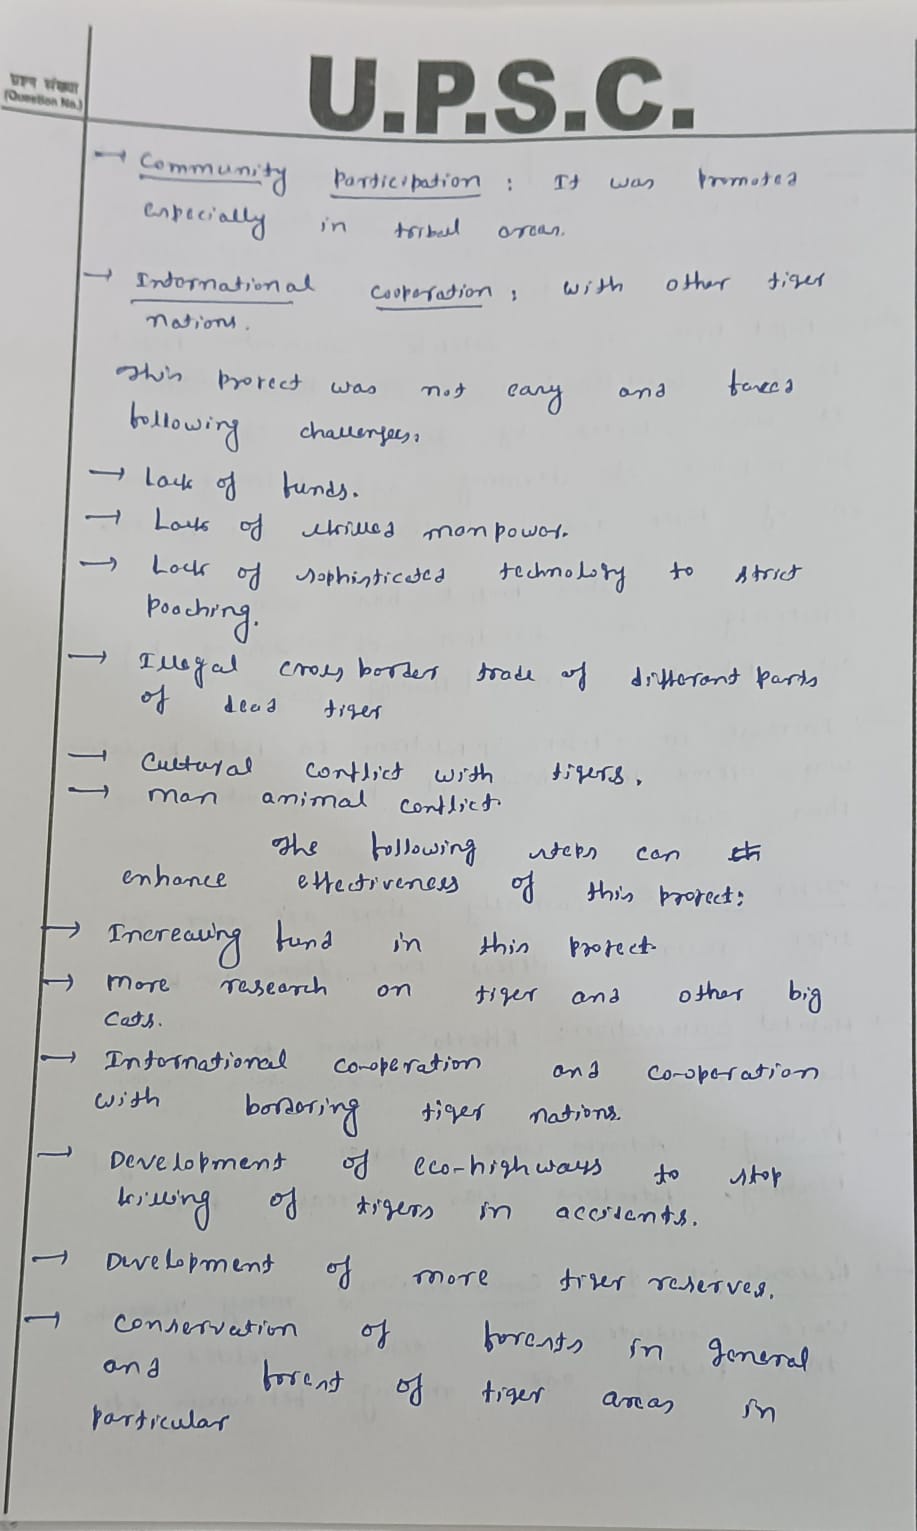 प्रश्न संख्या
(Question No.)
U.P.S.C.
→ Community Participation : It was promoted
especially in tribal areas.
→ International cooperation : with other tiger
nations.
This project was not easy and faced
following challenges:
→ Lack of funds.
→ Lack of skilled manpower.
→ Lack of sophisticated technology to strict
poaching.
→ Illegal cross border trade of different parts
of dead tiger
→ Cultural conflict with tigers.
→ man animal conflict.
The following steps can
enhance effectiveness of this project:
→ Increasing fund in this project
→ more research on tiger and other big
cats.
→ International co-operation and co-operation
with bordering tiger nations.
→ Development of eco-highways to stop
killing of tigers in accidents.
→ Development of more tiger reserves.
→ conservation of forests in general
and forest of tiger areas in
particular